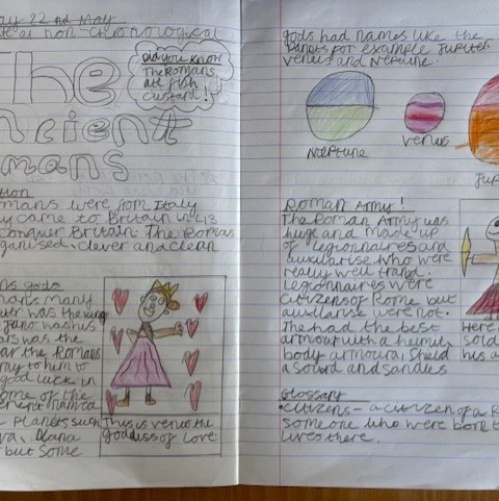 22nd May
non-chronological
The
Did you know
The Romans
ate fish
custard!
ncient
omans
tion
mans were from Italy
y came to Britain in 43
conquer Britain. The Romas
ganised, clever and clean
ns gods
mans many
was the king
Juno was his
ars was the
ar the Romans
ray to him to
good luck in
ome of the
erent names
Planets such
Diana
but some
This is venus the
goddess of Love
gods had names like the
Planets for example Jupiter.
venus and Neptune.
Neptune
venus
Jup
Roman Army!
The Roman Army was
huge and made up
of legionnaires and
auxiliarise who were
really well traind.
Legionnaires were
citizens of Rome but
auxiliarise were not.
The had the best
armour with a helmit,
body armoura, Sheild
a sword and sandles
Here
sold
his a
Glossary
citizens - a citizen of a R
someone who were born
lives there.